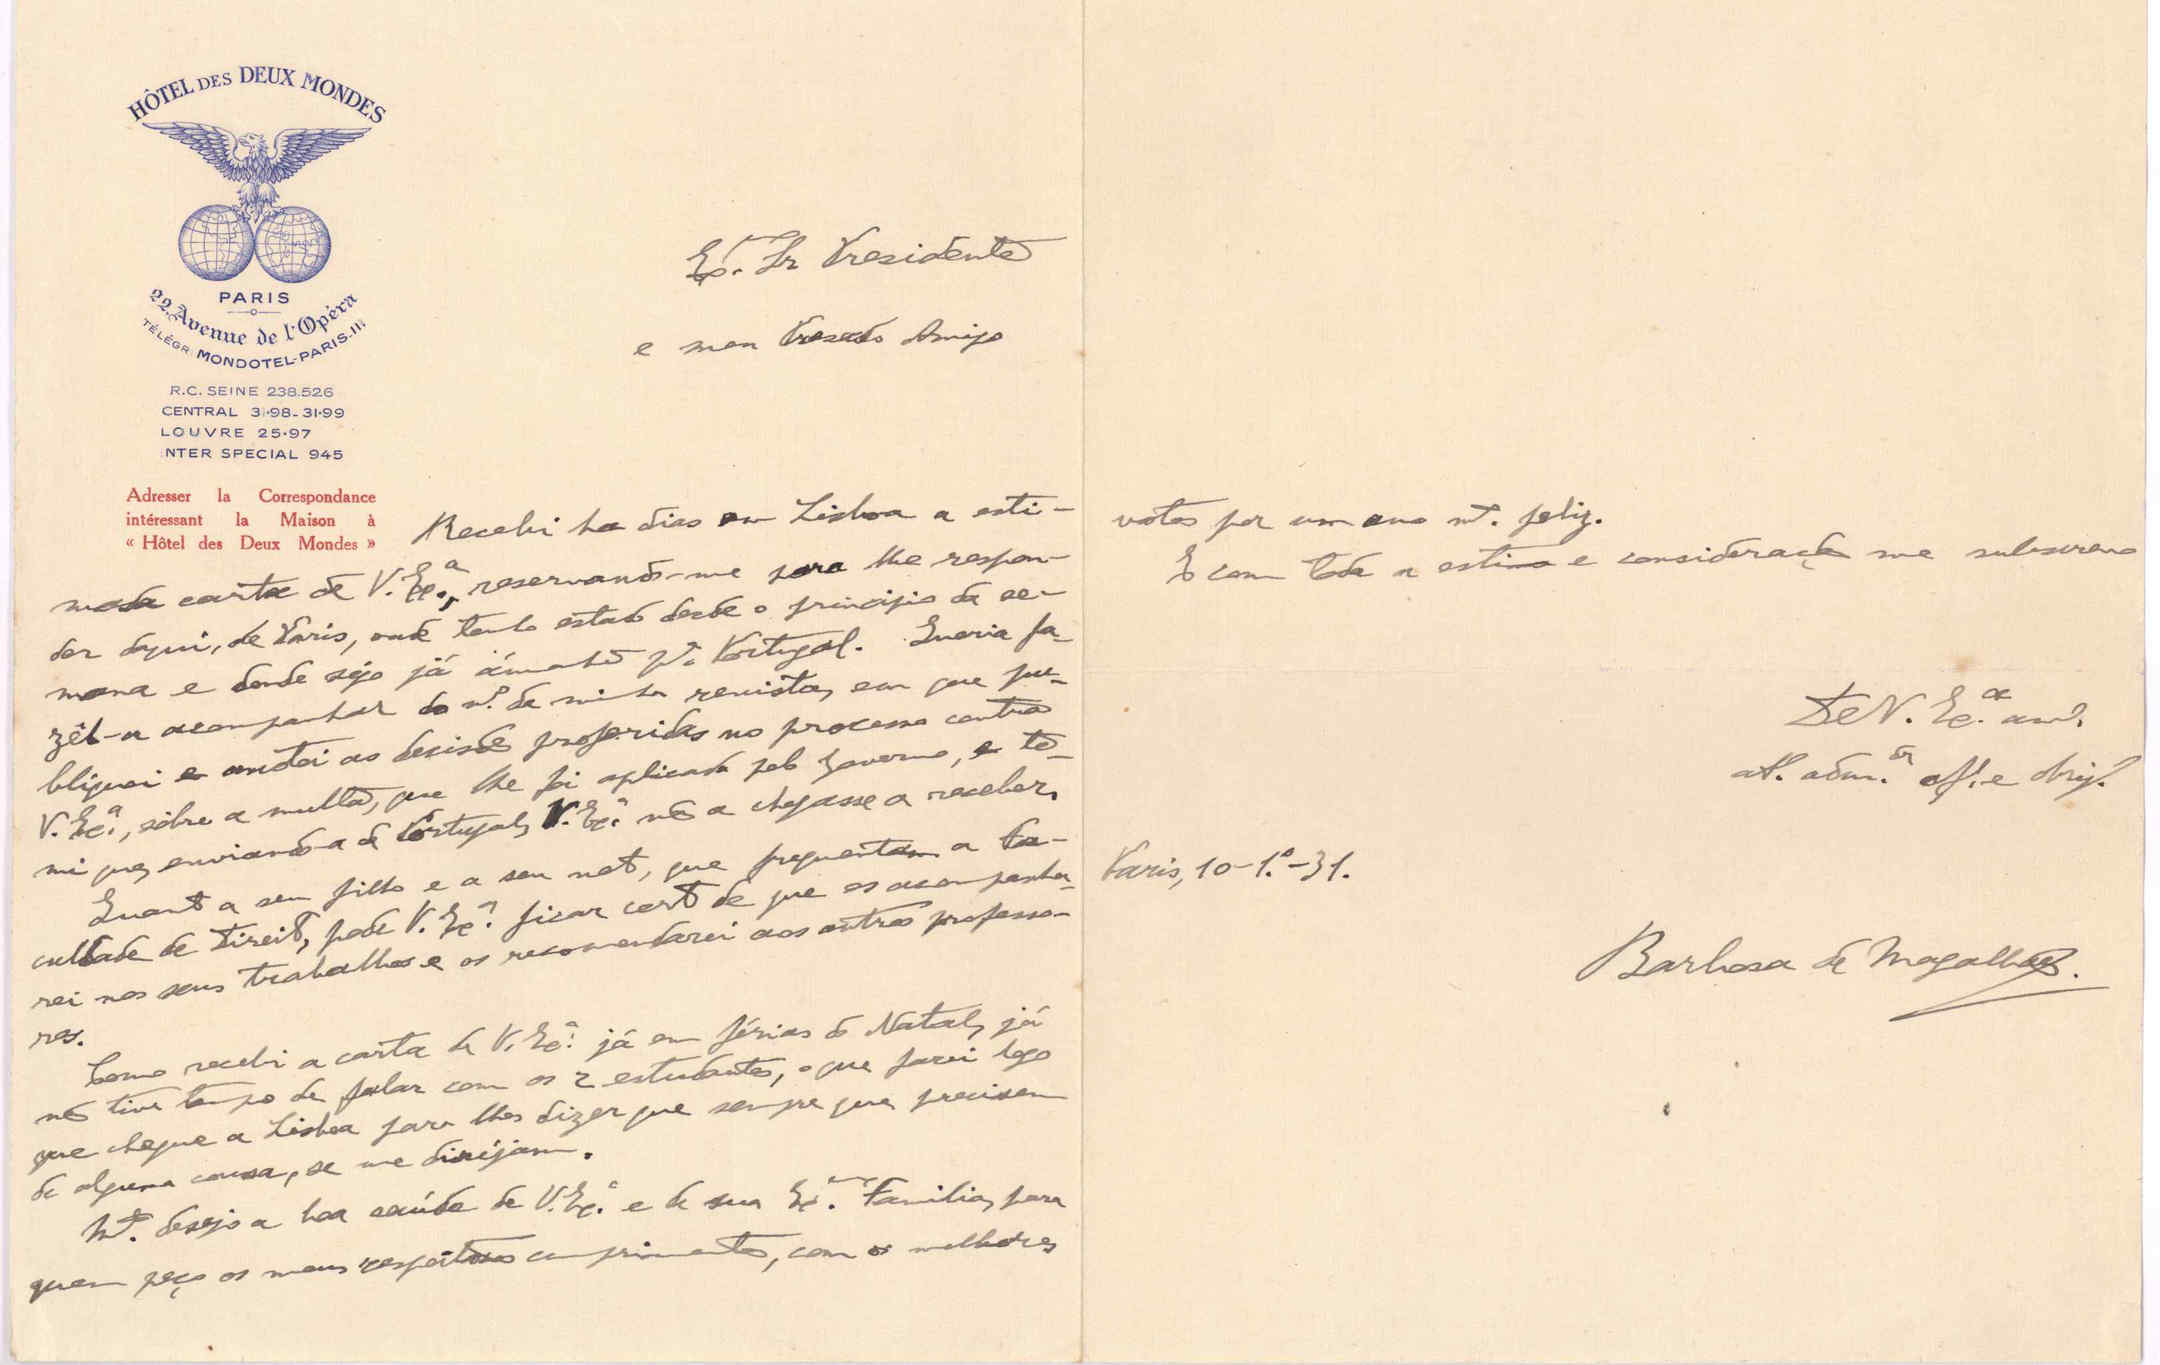 HÔTEL DES DEUX MONDES
PARIS
22, Avenue de l'Opéra
TÉLÉGR. MONDOTEL-PARIS.111
R.C. SEINE 238.526
CENTRAL 31·98-31·99
LOUVRE 25·97
INTER SPECIAL 945
Adresser la Correspondance
intéressant la Maison à
« Hôtel des Deux Mondes »
Ex.mo Sr Presidente
e meu Presado Amigo
Recebi ha dias em Lisboa a esti-
mada carta de V. Ex.a, reservando-me para lhe respon-
der daqui, de Paris, onde tenho estado desde o principio da se-
mana e donde sigo já ámanhã p.a Portugal. Queria fa-
zêl-a acompanhar do n.o da minha revista, em que pu-
bliquei e anotei as decisões proferidas no processo contra
V. Ex.a, sôbre a multa, que lhe foi aplicada pelo Governo, e te-
mi que, enviando-a de Portugal, V. Ex.a não a chegasse a receber.
Quanto a seu filho e a seu neto, que frequentam a Fa-
culdade de Direito, pode V. Ex.a ficar certo de que os acompanha-
rei nos seus trabalhos e os recomendarei aos outros professo-
res.
Como recebi a carta de V. Ex.a já em férias do Natal, já
não tive tempo de falar com os 2 estudantes, o que farei logo
que chegue a Lisboa para lhes dizer que sempre que precisem
de alguma cousa, se me dirijam.
M.to desejo a boa saúde de V. Ex.a e de sua Ex.ma Familia, para
quem peço os meus respeitosos cumprimentos, com os melhores
votos por um ano m.to feliz.
E com toda a estima e consideração me subscrevo
De V. Ex.a am.o
at.o adm.or aff. e obrig.o
Paris, 10-1.o-31.
Barbosa de Magalhães.